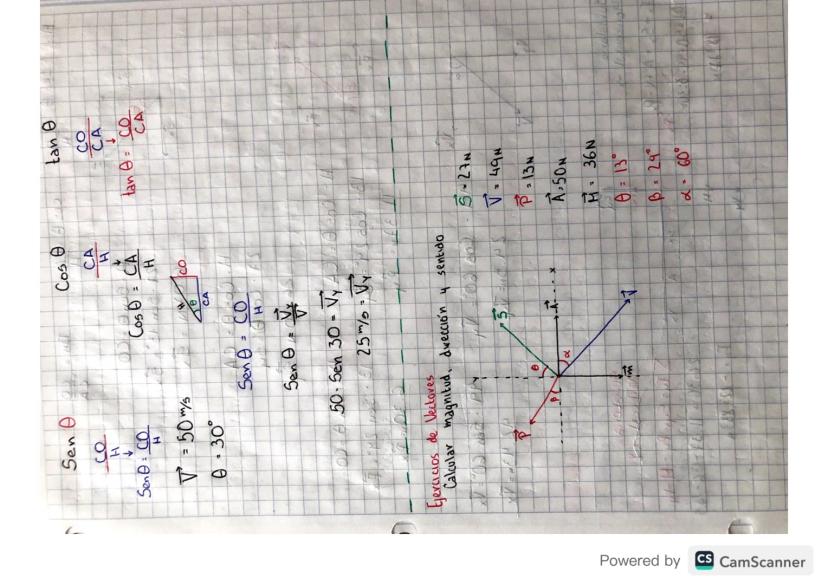 Sen θ Cos θ tan θ
CO/H CA/H CO/CA
Sen θ = CO/H Cos θ = CA/H tan θ = CO/CA
V = 50 m/s
θ = 30°
H CO
θ
CA
Sen θ = CO/H
Sen θ = Vy/V
50 · Sen 30 = Vy
25 m/s = Vy
Ejercicios de Vectores
Calcular magnitud, dirección y sentido
S = 27N
V = 49N
P = 13N
A = 50N
H = 36N
θ = 13°
β = 24°
α = 60°
y
S
P
θ
β
α
A
x
V
Powered by CS CamScanner